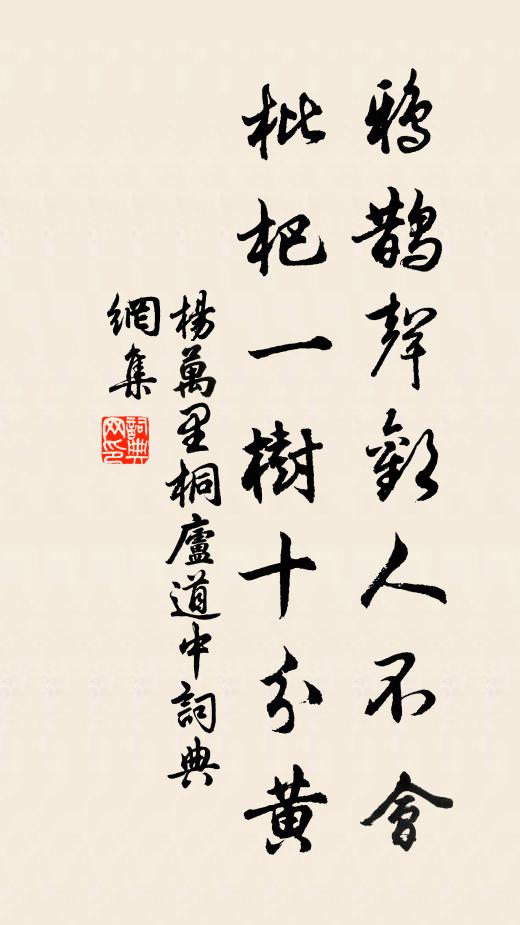 鴉鵲聲歡人不會
枇杷一樹十分黃
楊萬里桐廬道中詞典
網集
詞典
网印